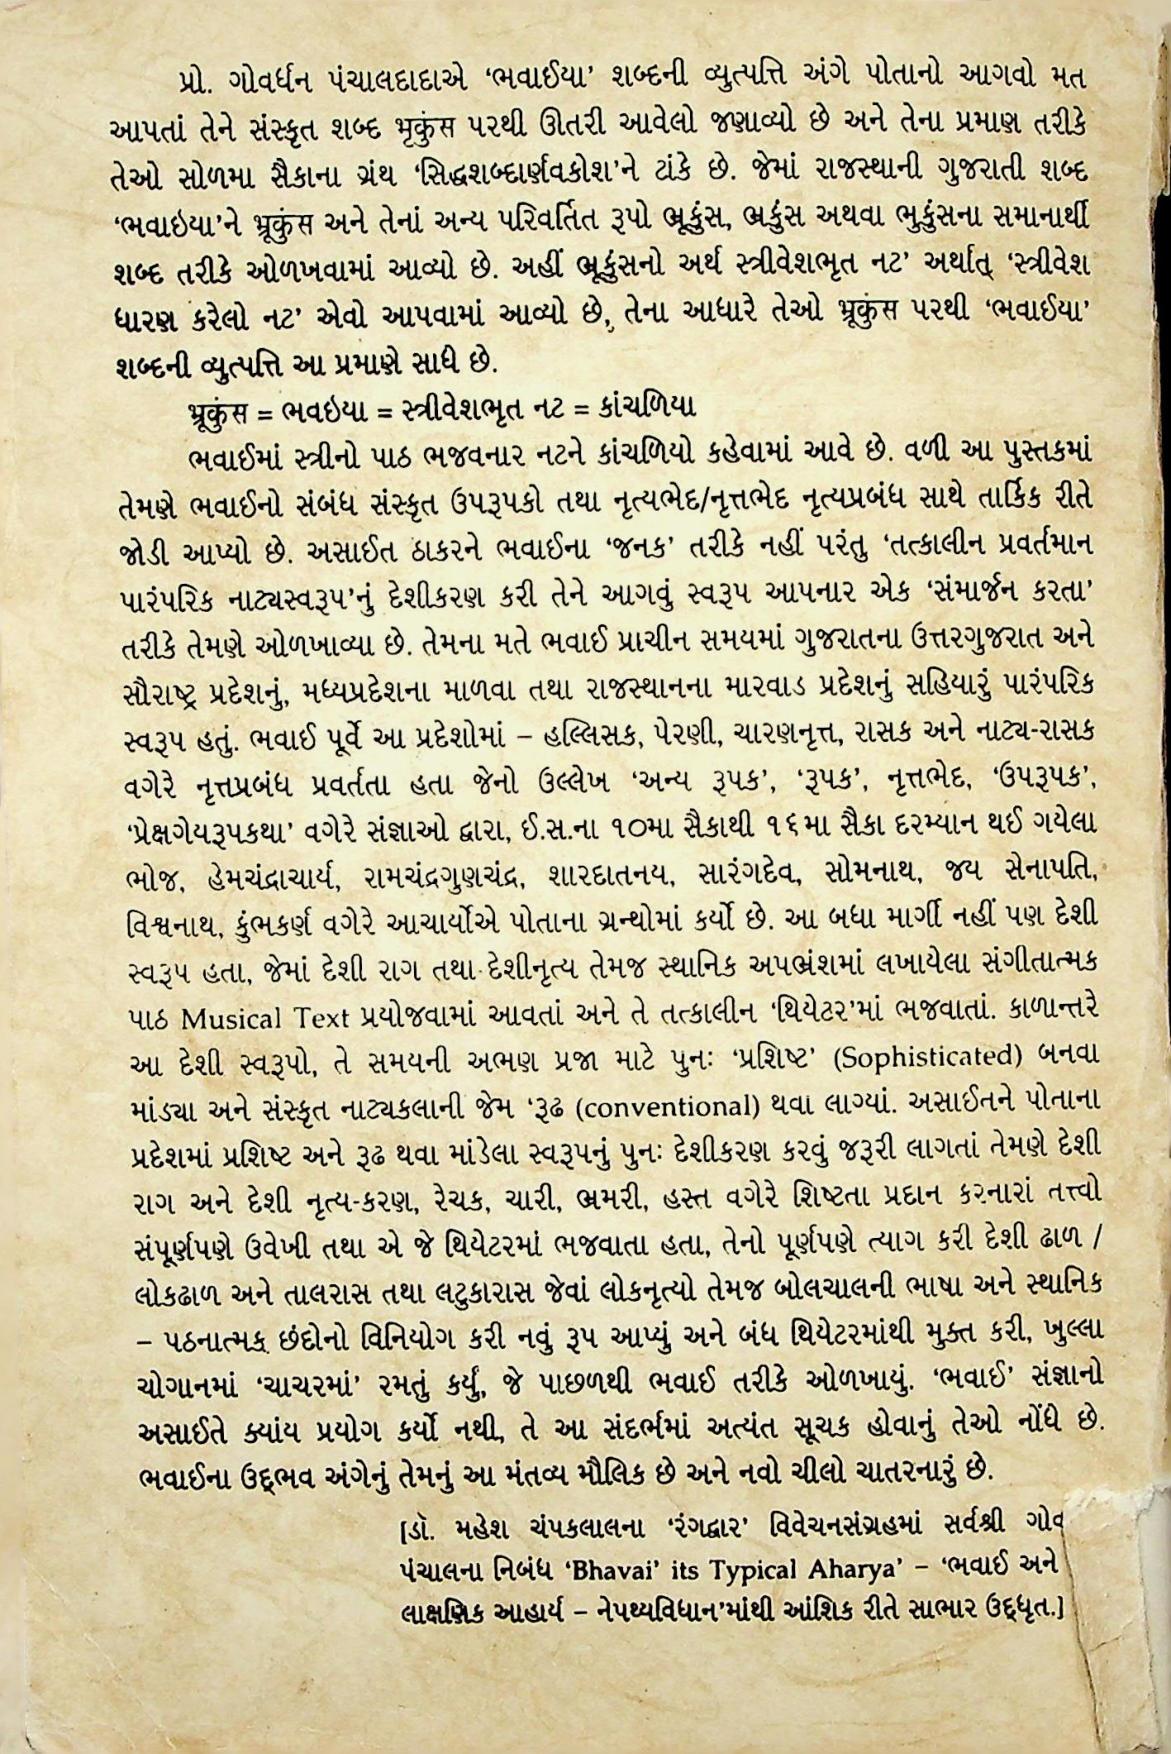 પ્રો. ગોવર્ધન પંચાલદાદાએ ‘ભવાઈયા’ શબ્દની વ્યુત્પત્તિ અંગે પોતાનો આગવો મત
આપતાં તેને સંસ્કૃત શબ્દ भृकुंस પરથી ઊતરી આવેલો જણાવ્યો છે અને તેના પ્રમાણ તરીકે
તેઓ સોળમા સૈકાના ગ્રંથ ‘સિદ્ધશબ્દાર્ણવકોશ’ને ટાંકે છે. જેમાં રાજસ્થાની ગુજરાતી શબ્દ
‘ભવાઇયા’ને भ्रूकुंस અને તેનાં અન્ય પરિવર્તિત રૂપો ભ્રૂકુંસ, ભ્રકુંસ અથવા ભુકુંસના સમાનાર્થી
શબ્દ તરીકે ઓળખવામાં આવ્યો છે. અહીં ભ્રૂકુંસનો અર્થ સ્ત્રીવેશભૃત નટ’ અર્થાત્ ‘સ્ત્રીવેશ
ધારણ કરેલો નટ’ એવો આપવામાં આવ્યો છે, તેના આધારે તેઓ भ्रूकुंस પરથી ‘ભવાઈયા’
શબ્દની વ્યુત્પત્તિ આ પ્રમાણે સાધે છે.
भ्रूकुंस = ભવઇયા = સ્ત્રીવેશભૃત નટ = કાંચળિયા
ભવાઈમાં સ્ત્રીનો પાઠ ભજવનાર નટને કાંચળિયો કહેવામાં આવે છે. વળી આ પુસ્તકમાં
તેમણે ભવાઈનો સંબંધ સંસ્કૃત ઉપરૂપકો તથા નૃત્યભેદ/નૃત્તભેદ નૃત્યપ્રબંધ સાથે તાર્કિક રીતે
જોડી આપ્યો છે. અસાઈત ઠાકરને ભવાઈના ‘જનક’ તરીકે નહીં પરંતુ ‘તત્કાલીન પ્રવર્તમાન
પારંપરિક નાટ્યસ્વરૂપ’નું દેશીકરણ કરી તેને આગવું સ્વરૂપ આપનાર એક ‘સંમાર્જન કરતા’
તરીકે તેમણે ઓળખાવ્યા છે. તેમના મતે ભવાઈ પ્રાચીન સમયમાં ગુજરાતના ઉત્તરગુજરાત અને
સૌરાષ્ટ્ર પ્રદેશનું, મધ્યપ્રદેશના માળવા તથા રાજસ્થાનના મારવાડ પ્રદેશનું સહિયારું પારંપરિક
સ્વરૂપ હતું. ભવાઈ પૂર્વે આ પ્રદેશોમાં – હલ્લિસક, પેરણી, ચારણનૃત્ત, રાસક અને નાટ્ય-રાસક
વગેરે નૃત્તપ્રબંધ પ્રવર્તતા હતા જેનો ઉલ્લેખ ‘અન્ય રૂપક’, ‘રૂપક’, નૃત્તભેદ, ‘ઉપરૂપક’,
‘પ્રેક્ષગેયરૂપકથા’ વગેરે સંજ્ઞાઓ દ્વારા, ઈ.સ.ના ૧૦મા સૈકાથી ૧૬મા સૈકા દરમ્યાન થઈ ગયેલા
ભોજ, હેમચંદ્રાચાર્ય, રામચંદ્રગુણચંદ્ર, શારદાતનય, સારંગદેવ, સોમનાથ, જય સેનાપતિ,
વિશ્વનાથ, કુંભકર્ણ વગેરે આચાર્યોએ પોતાના ગ્રન્થોમાં કર્યો છે. આ બધા માર્ગી નહીં પણ દેશી
સ્વરૂપ હતા, જેમાં દેશી રાગ તથા દેશીનૃત્ય તેમજ સ્થાનિક અપભ્રંશમાં લખાયેલા સંગીતાત્મક
પાઠ Musical Text પ્રયોજવામાં આવતાં અને તે તત્કાલીન ‘થિયેટર’માં ભજવાતાં. કાળાન્તરે
આ દેશી સ્વરૂપો, તે સમયની અભણ પ્રજા માટે પુનઃ ‘પ્રશિષ્ટ’ (Sophisticated) બનવા
માંડ્યા અને સંસ્કૃત નાટ્યકલાની જેમ ‘રૂઢ (conventional) થવા લાગ્યાં. અસાઈતને પોતાના
પ્રદેશમાં પ્રશિષ્ટ અને રૂઢ થવા માંડેલા સ્વરૂપનું પુનઃ દેશીકરણ કરવું જરૂરી લાગતાં તેમણે દેશી
રાગ અને દેશી નૃત્ય-કરણ, રેચક, ચારી, ભ્રમરી, હસ્ત વગેરે શિષ્ટતા પ્રદાન કરનારાં તત્ત્વો
સંપૂર્ણપણે ઉવેખી તથા એ જે થિયેટરમાં ભજવાતા હતા, તેનો પૂર્ણપણે ત્યાગ કરી દેશી ઢાળ /
લોકઢાળ અને તાલરાસ તથા લટુકારાસ જેવાં લોકનૃત્યો તેમજ બોલચાલની ભાષા અને સ્થાનિક
– પઠનાત્મક છંદોનો વિનિયોગ કરી નવું રૂપ આપ્યું અને બંધ થિયેટરમાંથી મુક્ત કરી, ખુલ્લા
ચોગાનમાં ‘ચાચરમાં’ રમતું કર્યું, જે પાછળથી ભવાઈ તરીકે ઓળખાયું. ‘ભવાઈ’ સંજ્ઞાનો
અસાઈતે ક્યાંય પ્રયોગ કર્યો નથી, તે આ સંદર્ભમાં અત્યંત સૂચક હોવાનું તેઓ નોંધે છે.
ભવાઈના ઉદ્ભવ અંગેનું તેમનું આ મંતવ્ય મૌલિક છે અને નવો ચીલો ચાતરનારું છે.
[ડૉ. મહેશ ચંપકલાલના ‘રંગદ્વાર’ વિવેચનસંગ્રહમાં સર્વશ્રી ગોવ
પંચાલના નિબંધ ‘Bhavai’ its Typical Aharya’ – ‘ભવાઈ અને
લાક્ષણિક આહાર્ય – નેપથ્યવિધાન’માંથી આંશિક રીતે સાભાર ઉદ્ધૃત.]